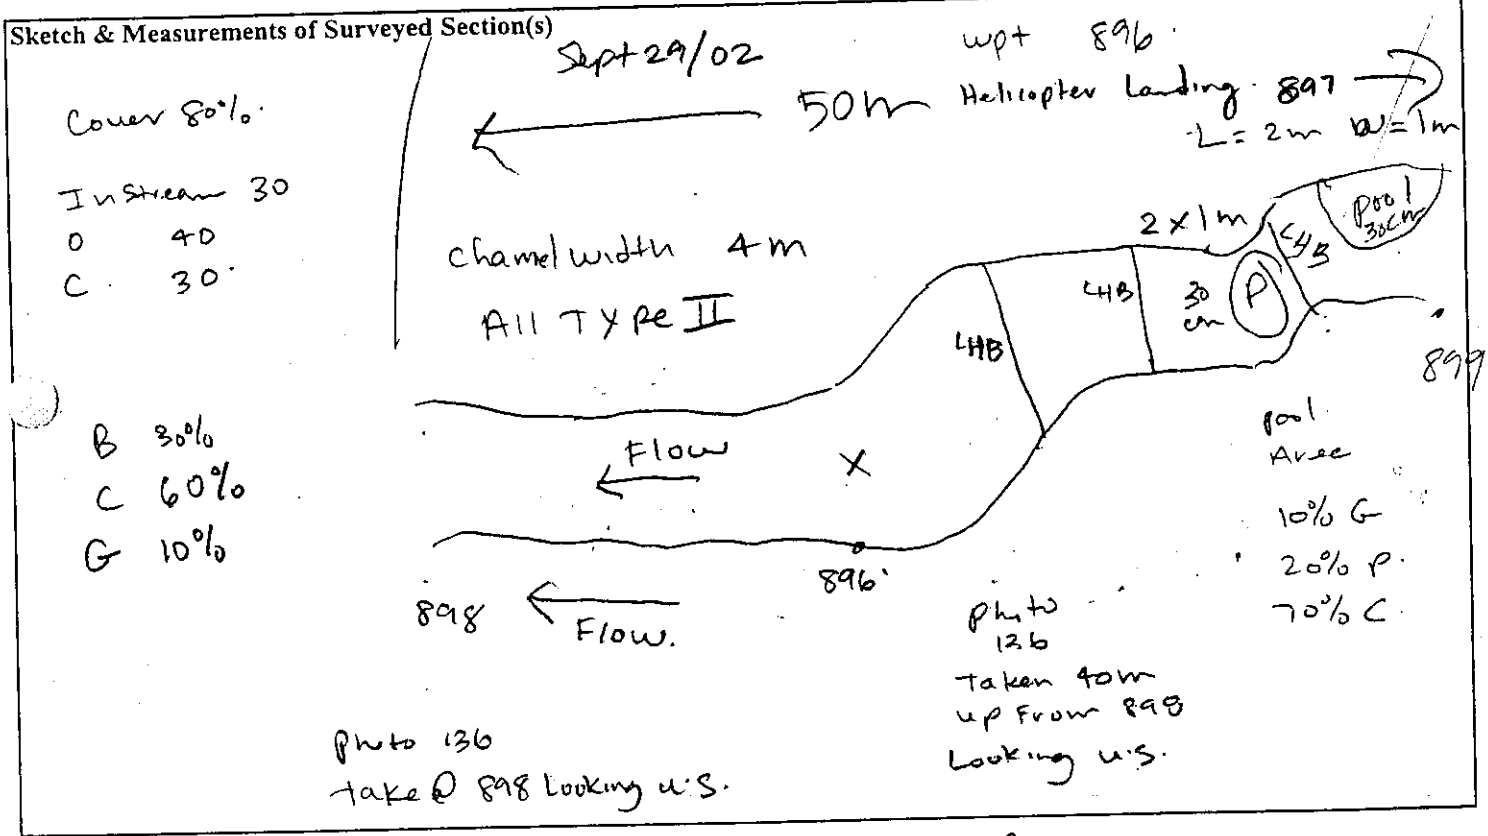 Sketch & Measurements of Surveyed Section(s)
Sept 29/02
wpt 896.
Cover 80%.
50m
Helicopter Landing. 897
L = 2m W = 1m
InStream 30
O 40
C. 30.
Channel width 4m
All Type II
2 x 1m
pool
30cm
LHB
LHB
LHB
30
cm
P
899
B 30%
C 60%
G 10%
Flow
X
pool
Area
10% G
20% P.
70% C.
896
898
Flow.
photo
136
Taken 40m
up From 898
Looking u.s.
photo 136
take @ 898 Looking u.s.